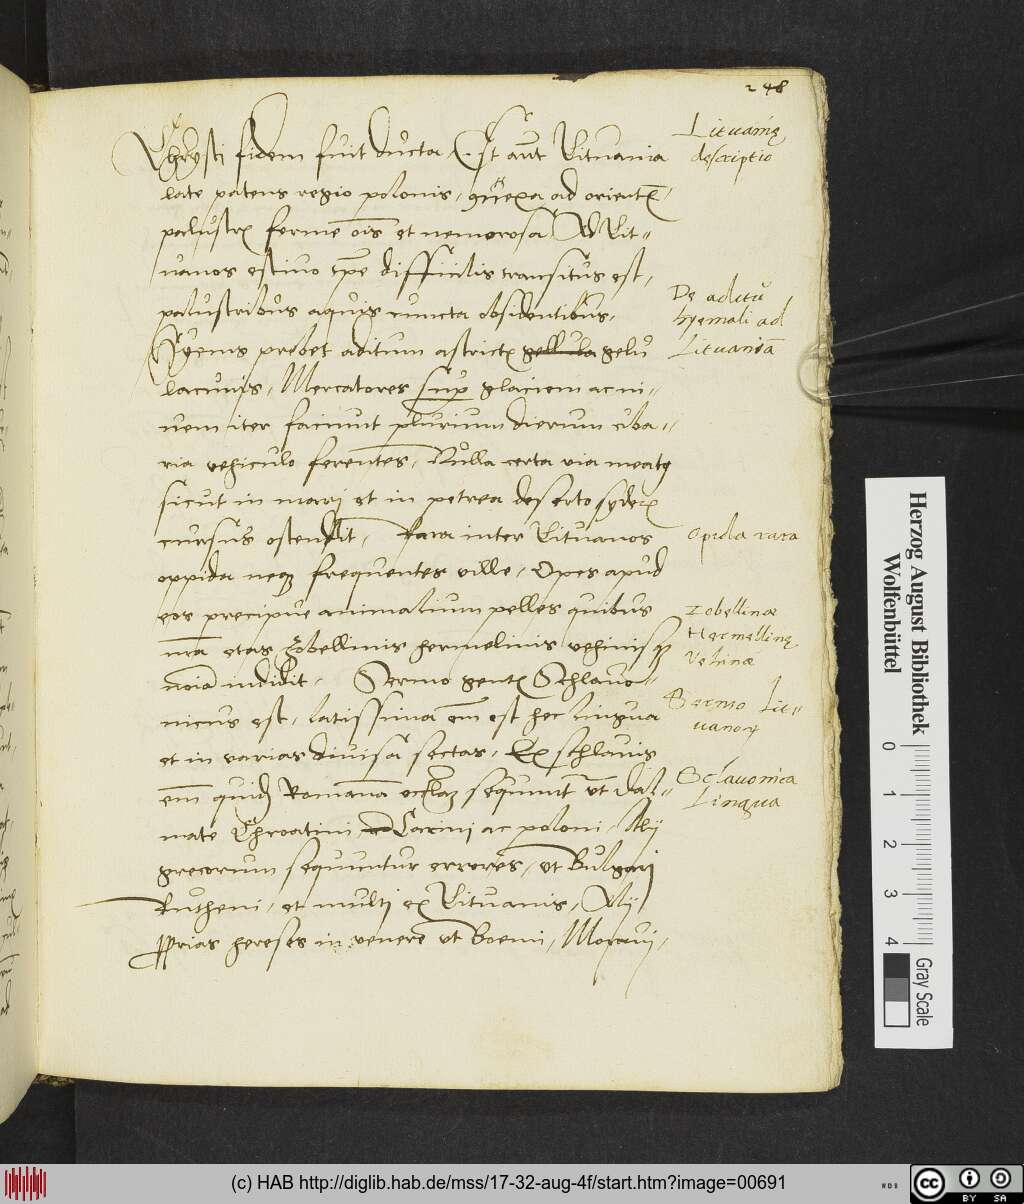 248
Chrysti fidem fuit ducta, Est aut Lituania
late patens regio polonis, ꝯnexa ad orientē,
palustrꝭ ferme oīs et nemorosa Ad Lit-
uanos estiuo tꝑe difficilis transitus est,
palustribus aquis cuncta obsidentibus,
Hyems prebet aditum astrictꝭ gellula gelu
lacunis, Mercatores suꝑ glaciem ac ni-
uem iter faciunt plurium dierum ciba-
ria vehiculo ferentes, Nulla certa via meatꝰ
sicut in mari et in petrea deserto syderꝭ
cursus ostendit, Rara inter Lituanos
oppida neqꝫ frequentes ville, Opes apud
eos precipue animalium pelles quibus
nrā etas zobellinis hermelinis vehinisqꝫ
noīa indidit, Sermo gentꝭ Schlauo-
nicus est, latissima em̄ est hec lingua
et in varias diuisa sectas, Ex schlauis
em̄ quidā Romanā eccl̄iaꝫ sequunt̄ ut Dal-
mate Chroatini Carni ac poloni, Alij
grecorum sequuntur errores, ut Bulgari
Rutheni, et multi ex Lituanis, Alij
ꝓprias hereses in venere ut Boemi, Moraui,
Lituanię
descriptio
De aditu
hyemali ad
Lituaniā
Opida rara
Zobellinæ
Hermellinę
Vehinæ
Sermo Lit-
uanoꝝ
Sclauonica
Lingua
Herzog August Bibliothek
Wolfenbüttel
0 1 2 3 4
Gray Scale
(c) HAB http://diglib.hab.de/mss/17-32-aug-4f/start.htm?image=00691
WDB
cc
BY SA